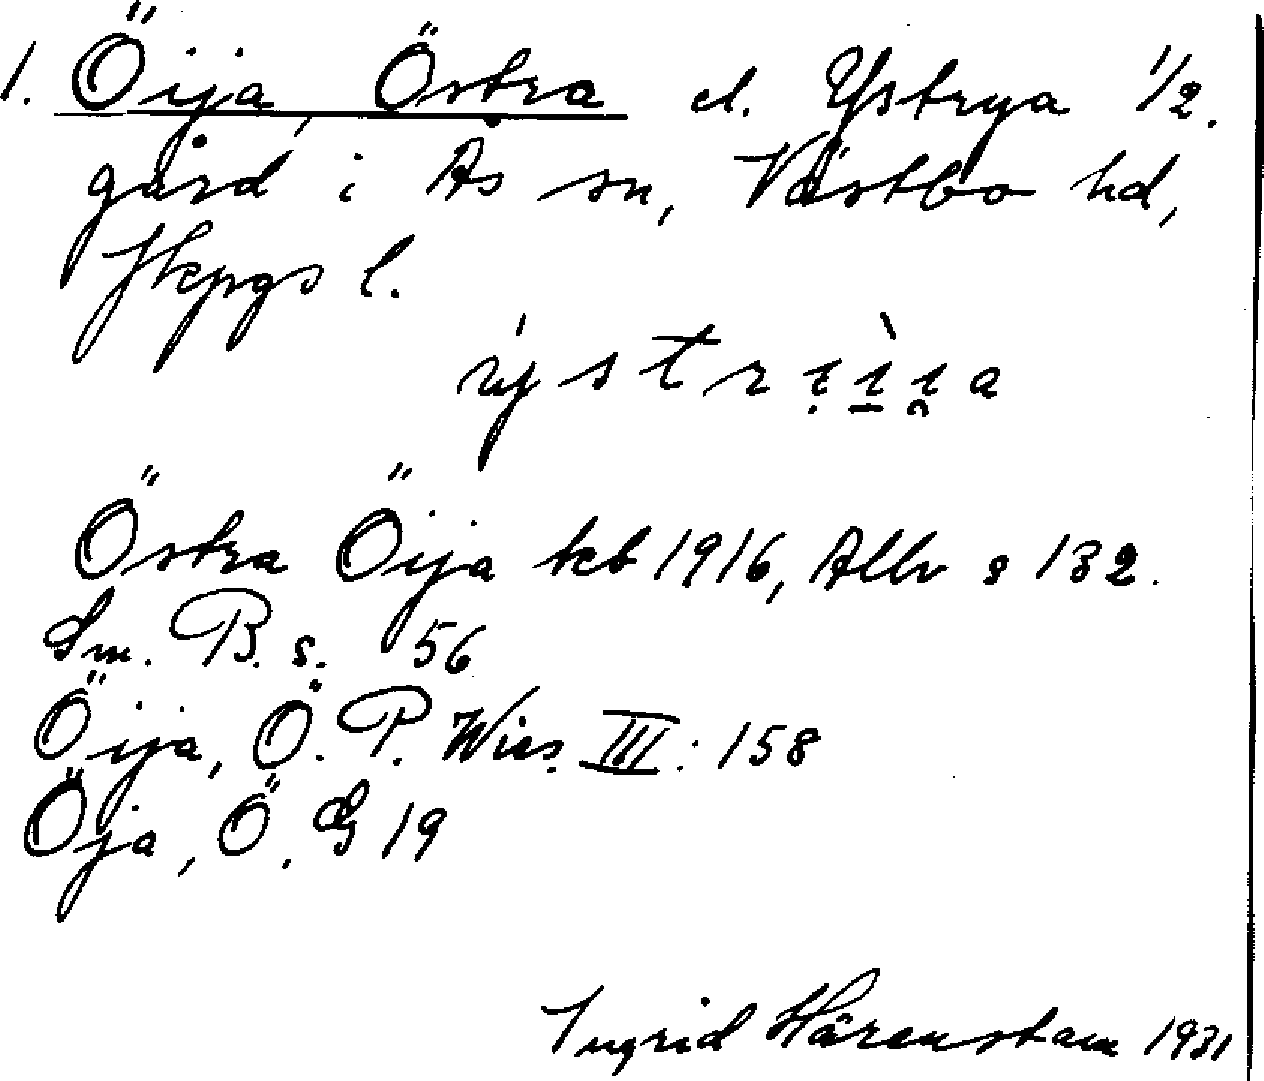 1. Öija, Östra el. Ystrya 1/2.
gård i Ås sn, Västbo hd,
Jkpgs l.
ýstrịı̱̀ı̯a
Östra Öija kb 1916, Allv s 132.
Sm. B. s. 56
Öija, Ö. P. Wies. III: 158
Öja, Ö. G 19
Ingrid Härenstam 1931